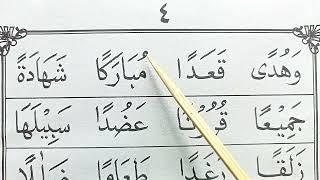 ٤
وَهُدًى قَعَدًا مُبَارَكًا شَهَادَةً
جَمِيْعًا عَضُدًا سَبِيْلَهَا
زَلَقًا رَغَدًا طَعَامًا